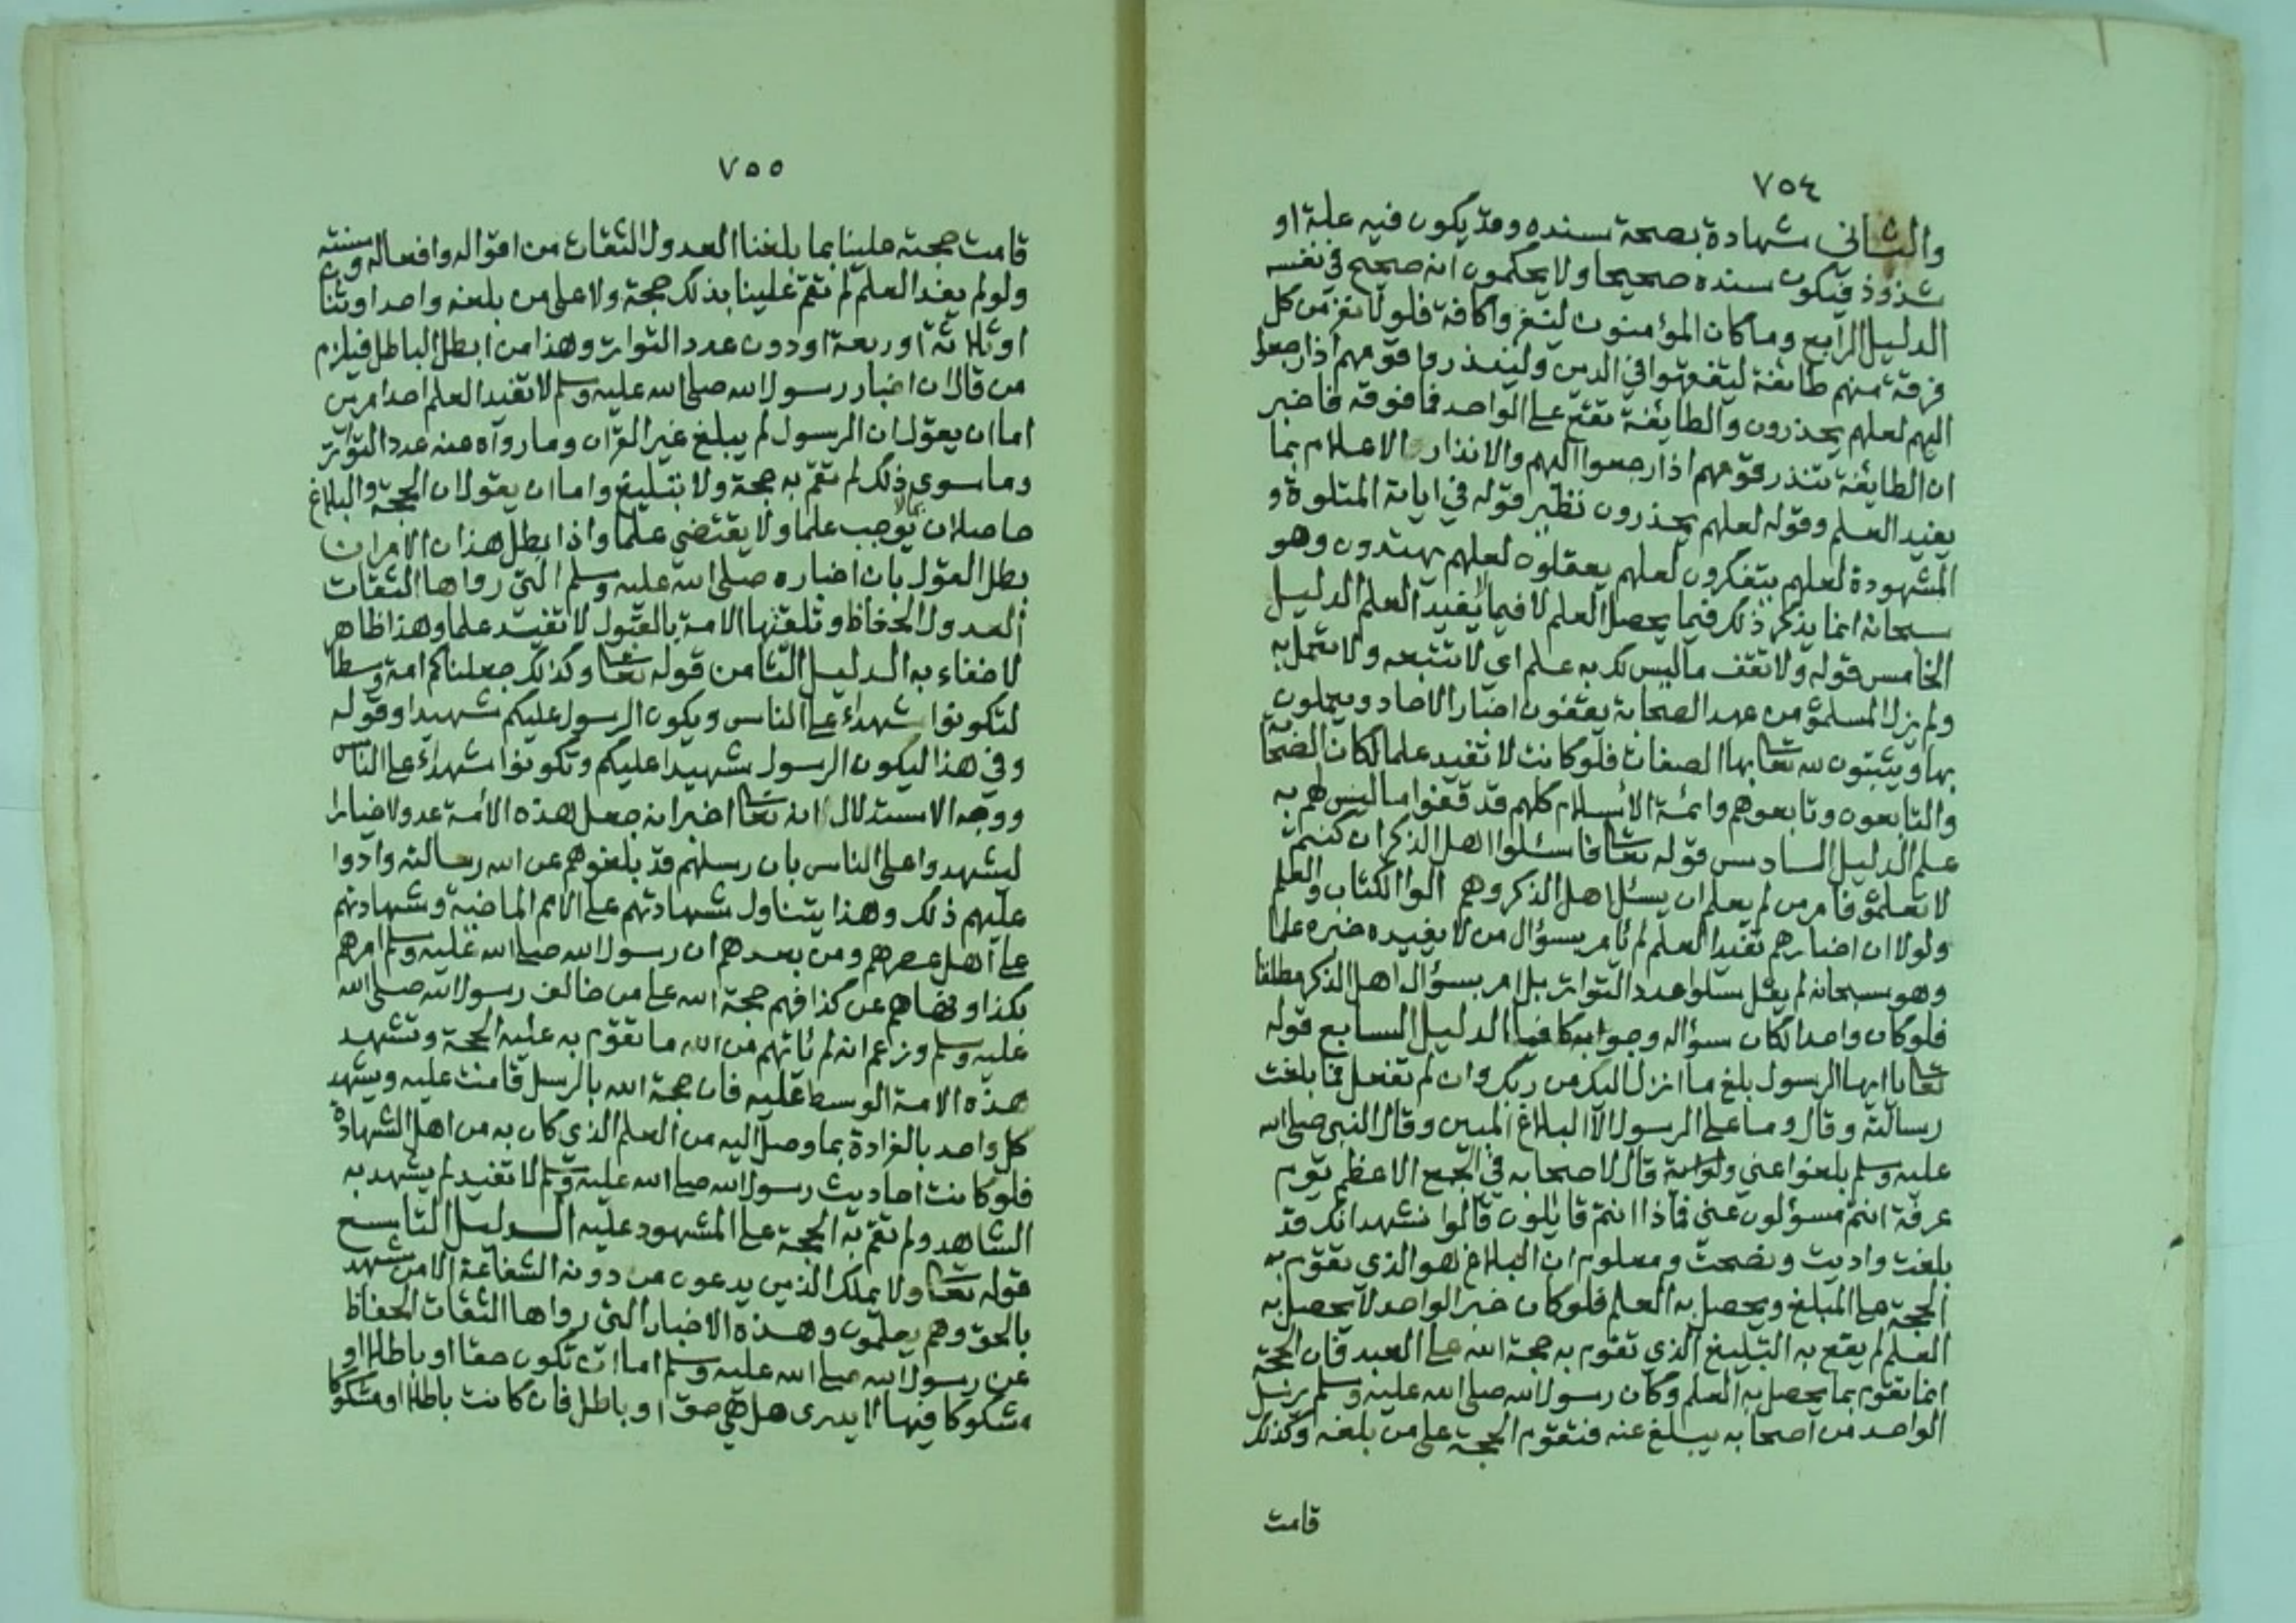 ٧٥٤
والثاني شهادة بصحة سنده وقد يكون فيه علة او
شذوذ فيكون سنده صحيحا ولا يحكمون انه صحيح في نفسه
الدليل الرابع وما كان المؤمنون لينفروا كافة فلولا نفر من كل
فرقة منهم طايفة ليتفقهوا في الدين ولينذروا قومهم اذا رجعوا
اليهم لعلهم يحذرون والطايفة تقع على الواحد فما فوقه فاخبر
ان الطايفة تنذر قومهم اذا رجعوا اليهم والانذار الاعلام بما
يفيد العلم وقوله لعلهم يحذرون نظير قوله في اياته المتلوة و
المشهودة لعلهم يتفكرون لعلهم يعقلون لعلهم يهتدون وهو
سبحانه انما يذكر ذلك فيما يحصل العلم لا فيما لا يفيد العلم الدليل
الخامس قوله ولا تقف ما ليس لك به علم اي لا تتبعه ولا تعمل به
ولم يزل المسلمون من عهد الصحابة يقفون اخبار الاحاد ويعملون
بها ويثبتون لله تعالى بها الصفات فلو كانت لا تفيد علما لكان الصحابة
والتابعون وتابعوهم وائمة الاسلام كلهم قد قفوا ما ليس لهم به
علم الدليل السادس قوله تعالى فاسئلوا اهل الذكر ان كنتم
لا تعلمون فامر من لم يعلم ان يسئل اهل الذكر وهم الوا الكتاب والعلم
ولولا ان اخبارهم تفيد العلم لم يأمر بسؤال من لا يفيده خبره علما
وهو سبحانه لم يقل سلوا عدد التواتر بل امر بسؤال اهل الذكر مطلقا
فلو كان واحدا لكان سؤاله وجوابه كافيا الدليل السابع قوله
تعالى يا ايها الرسول بلغ ما انزل اليك من ربك وان لم تفعل فما بلغت
رسالته وقال وما على الرسول الا البلاغ المبين وقال النبي صلى الله
عليه وسلم بلغوا عني ولو اية قال لاصحابه في الجمع الاعظم يوم
عرفة انتم مسؤلون عني فماذا انتم قايلون قالوا نشهد انك قد
بلغت واديت ونصحت ومعلوم ان البلاغ هو الذي تقوم به
الحجة على المبلغ ويحصل به العلم فلو كان خبر الواحد لا يحصل به
العلم لم يقع به التبليغ الذي تقوم به حجة الله على العبد فان الحجة
انما تقوم بما يحصل به العلم وكان رسول الله صلى الله عليه وسلم يرسل
الواحد من اصحابه يبلغ عنه فتقوم الحجة على من بلغه وكذلك
قامت
٧٥٥
قامت حجته علينا بما بلغنا العدول الثقات من اقواله وافعاله وسنته
ولو لم يفد العلم لم تقم علينا بذلك حجة ولا على من بلغه واحد او
او ثلاثة او اربعة او دون عدد التواتر وهذا من ابطل الباطل فيلزم
من قال ان اخبار رسول الله صلى الله عليه وسلم لا تفيد العلم احد امرين
اما ان يقول ان الرسول لم يبلغ غير القران وما رواه عنه عدد التواتر
وما سوى ذلك لم تقم به حجة ولا تبليغ واما ان يقول ان الحجة والبلاغ
حاصلان بما لا يوجب علما ولا يقتضي علما واذا بطل هذان الامران
بطل القول بان اخباره صلى الله عليه وسلم التي رواها الثقات
العدول الحفاظ وتلقتها الامة بالقبول لا تفيد علما وهذا ظاهر
لا خفاء به الدليل الثامن قوله تعالى وكذلك جعلناكم امة وسطا
لتكونوا شهداء على الناس ويكون الرسول عليكم شهيدا وقوله
وفي هذا ليكون الرسول شهيدا عليكم وتكونوا شهداء على الناس
ووجه الاستدلال انه تعالى اخبر انه جعل هذه الامة عدولا خيارا
ليشهدوا على الناس بان رسلهم قد بلغوهم عن الله رسالته وادوا
عليهم ذلك وهذا يتناول شهادتهم على الامم الماضية وشهادتهم
على اهل عصرهم ومن بعدهم ان رسول الله صلى الله عليه وسلم امرهم
بكذا ونهاهم عن كذا فهم حجة الله على من خالف رسول الله صلى الله
عليه وسلم وزعم انه لم يأتهم من الله ما تقوم به عليه الحجة وتشهد
هذه الامة الوسط عليه فان حجة الله بالرسل قامت عليه ويشهد
كل واحد بالفرادة بما وصل اليه من العلم الذي كان به من اهل الشهادة
فلو كانت احاديث رسول الله صلى الله عليه وسلم لا تفيد لم يشهد به
الشاهد ولم تقم به الحجة على المشهود عليه الدليل التاسع
قوله تعالى ولا يملك الذين يدعون من دونه الشفاعة الا من شهد
بالحق وهم يعلمون وهذه الاخبار التي رواها الثقات الحفاظ
عن رسول الله صلى الله عليه وسلم اما ان تكون حقا او باطلا او
مشكوكا فيها لا يدرى هل هي حق او باطل فان كانت باطلا او مشكوكا